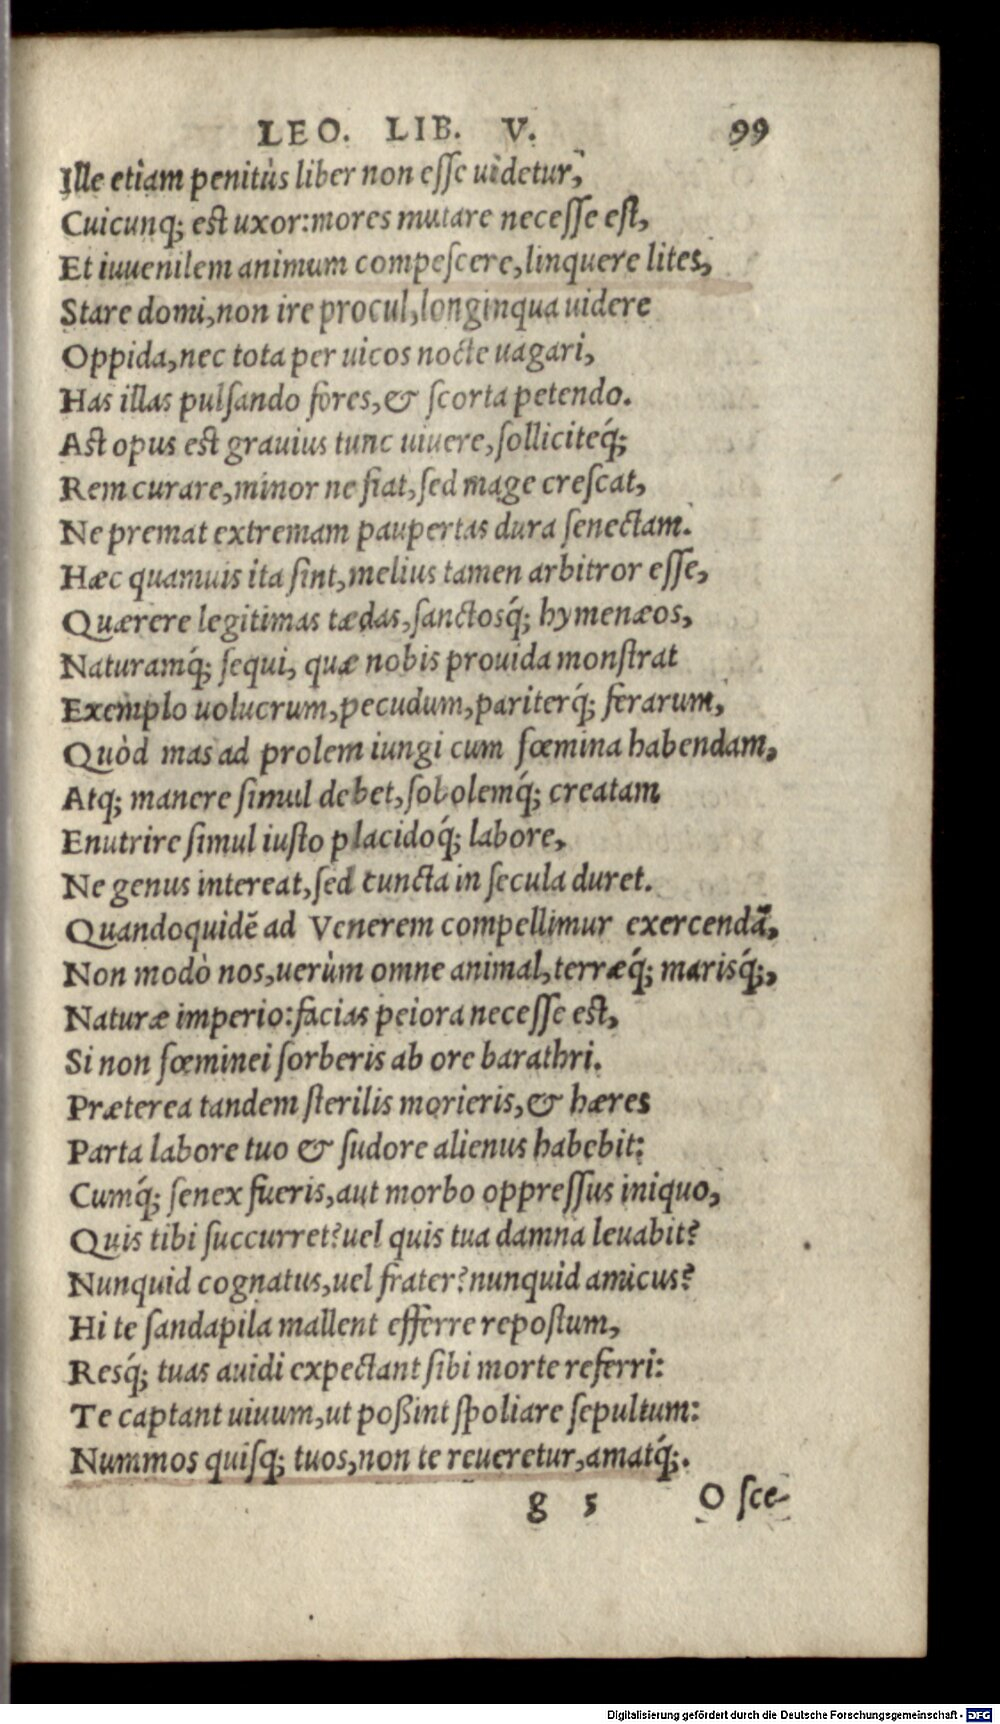 LEO. LIB. V. 99
Ille etiam penitùs liber non esse uidetur,
Cuicunq; est uxor: mores mutare necesse est,
Et iuuenilem animum compescere, linquere lites,
Stare domi, non ire procul, longinqua uidere
Oppida, nec tota per uicos nocte uagari,
Has illas pulsando fores, & scorta petendo.
Ast opus est grauius tunc uiuere, solliciteq́;
Rem curare, minor ne fiat, sed mage crescat,
Ne premat extremam paupertas dura senectam.
Hæc quamuis ita sint, melius tamen arbitror esse,
Quærere legitimas tædas, sanctosq́; hymenæos,
Naturamq́; sequi, quæ nobis prouida monstrat
Exemplo uolucrum, pecudum, pariterq́; ferarum,
Quòd mas ad prolem iungi cum fœmina habendam,
Atq; manere simul debet, sobolemq́; creatam
Enutrire simul iusto placidoq́; labore,
Ne genus intereat, sed cuncta in secula duret.
Quandoquidẽ ad Venerem compellimur exercendã,
Non modò nos, uerùm omne animal, terræq́; marisq́;,
Naturæ imperio: facias peiora necesse est,
Si non fœminei sorberis ab ore barathri.
Præterea tandem sterilis morieris, & hæres
Parta labore tuo & sudore alienus habebit:
Cumq́; senex fueris, aut morbo oppressus iniquo,
Quis tibi succurret? uel quis tua damna leuabit?
Nunquid cognatus, uel frater? nunquid amicus?
Hi te sandapila mallent efferre repostum,
Resq́; tuas auidi expectant sibi morte referri:
Te captant uiuum, ut poßint spoliare sepultum:
Nummos quisq; tuos, non te reueretur, amatq́;.
g 5 O sce-
Digitalisierung gefördert durch die Deutsche Forschungsgemeinschaft - DFG